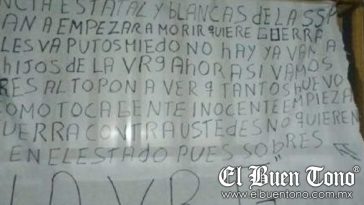 NCIA ESTATAL Y BLANCAS DE LA SSP
AN A EMPEZAR A MORIR QUIERE GUERRA
LES VA PUTOS MIEDO NO HAY YA VAN A
HIJOS DE LA VR9 AHORA SI VAMOS
RES AL TOPON A VER 9 TANTOS HUEVO
COMO TOCA GENTE INOCENTE EMPIEZA
UERRA CONTRA USTEDES NO QUIEREN
EN EL ESTADO PUES SOBRES
LA V R
El Buen Tono®
www.elbuentono.com.mx